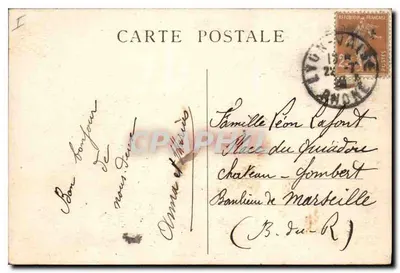 I
CARTE POSTALE
LYON-VAISE
RHONE
Bon bonjour
de
nous deux
Anna et
Famille Léon Lafont
Place du
Chateau-Gombert
Banlieue de Marseille
(B.-du-R)